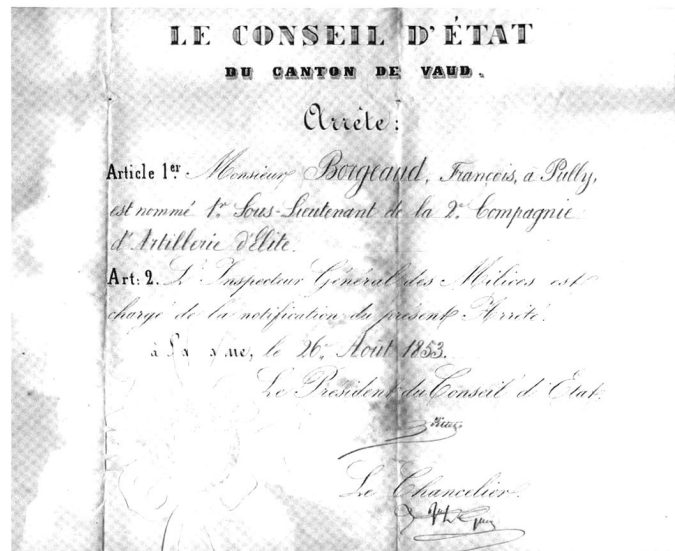 LE CONSEIL D'ÉTAT
DU CANTON DE VAUD.
Arrête:
Article 1er. Monsieur Borgeaud, François, à Pully,
est nommé 1er Sous-Lieutenant de la 2e Compagnie
d'Artillerie d'Elite.
Art: 2. L'Inspecteur Général des Milices est
chargé de la notification du présent Arrêté.
à Lausanne, le 26. Août 1853.
Le Président du Conseil d'Etat.
Le Chancelier.